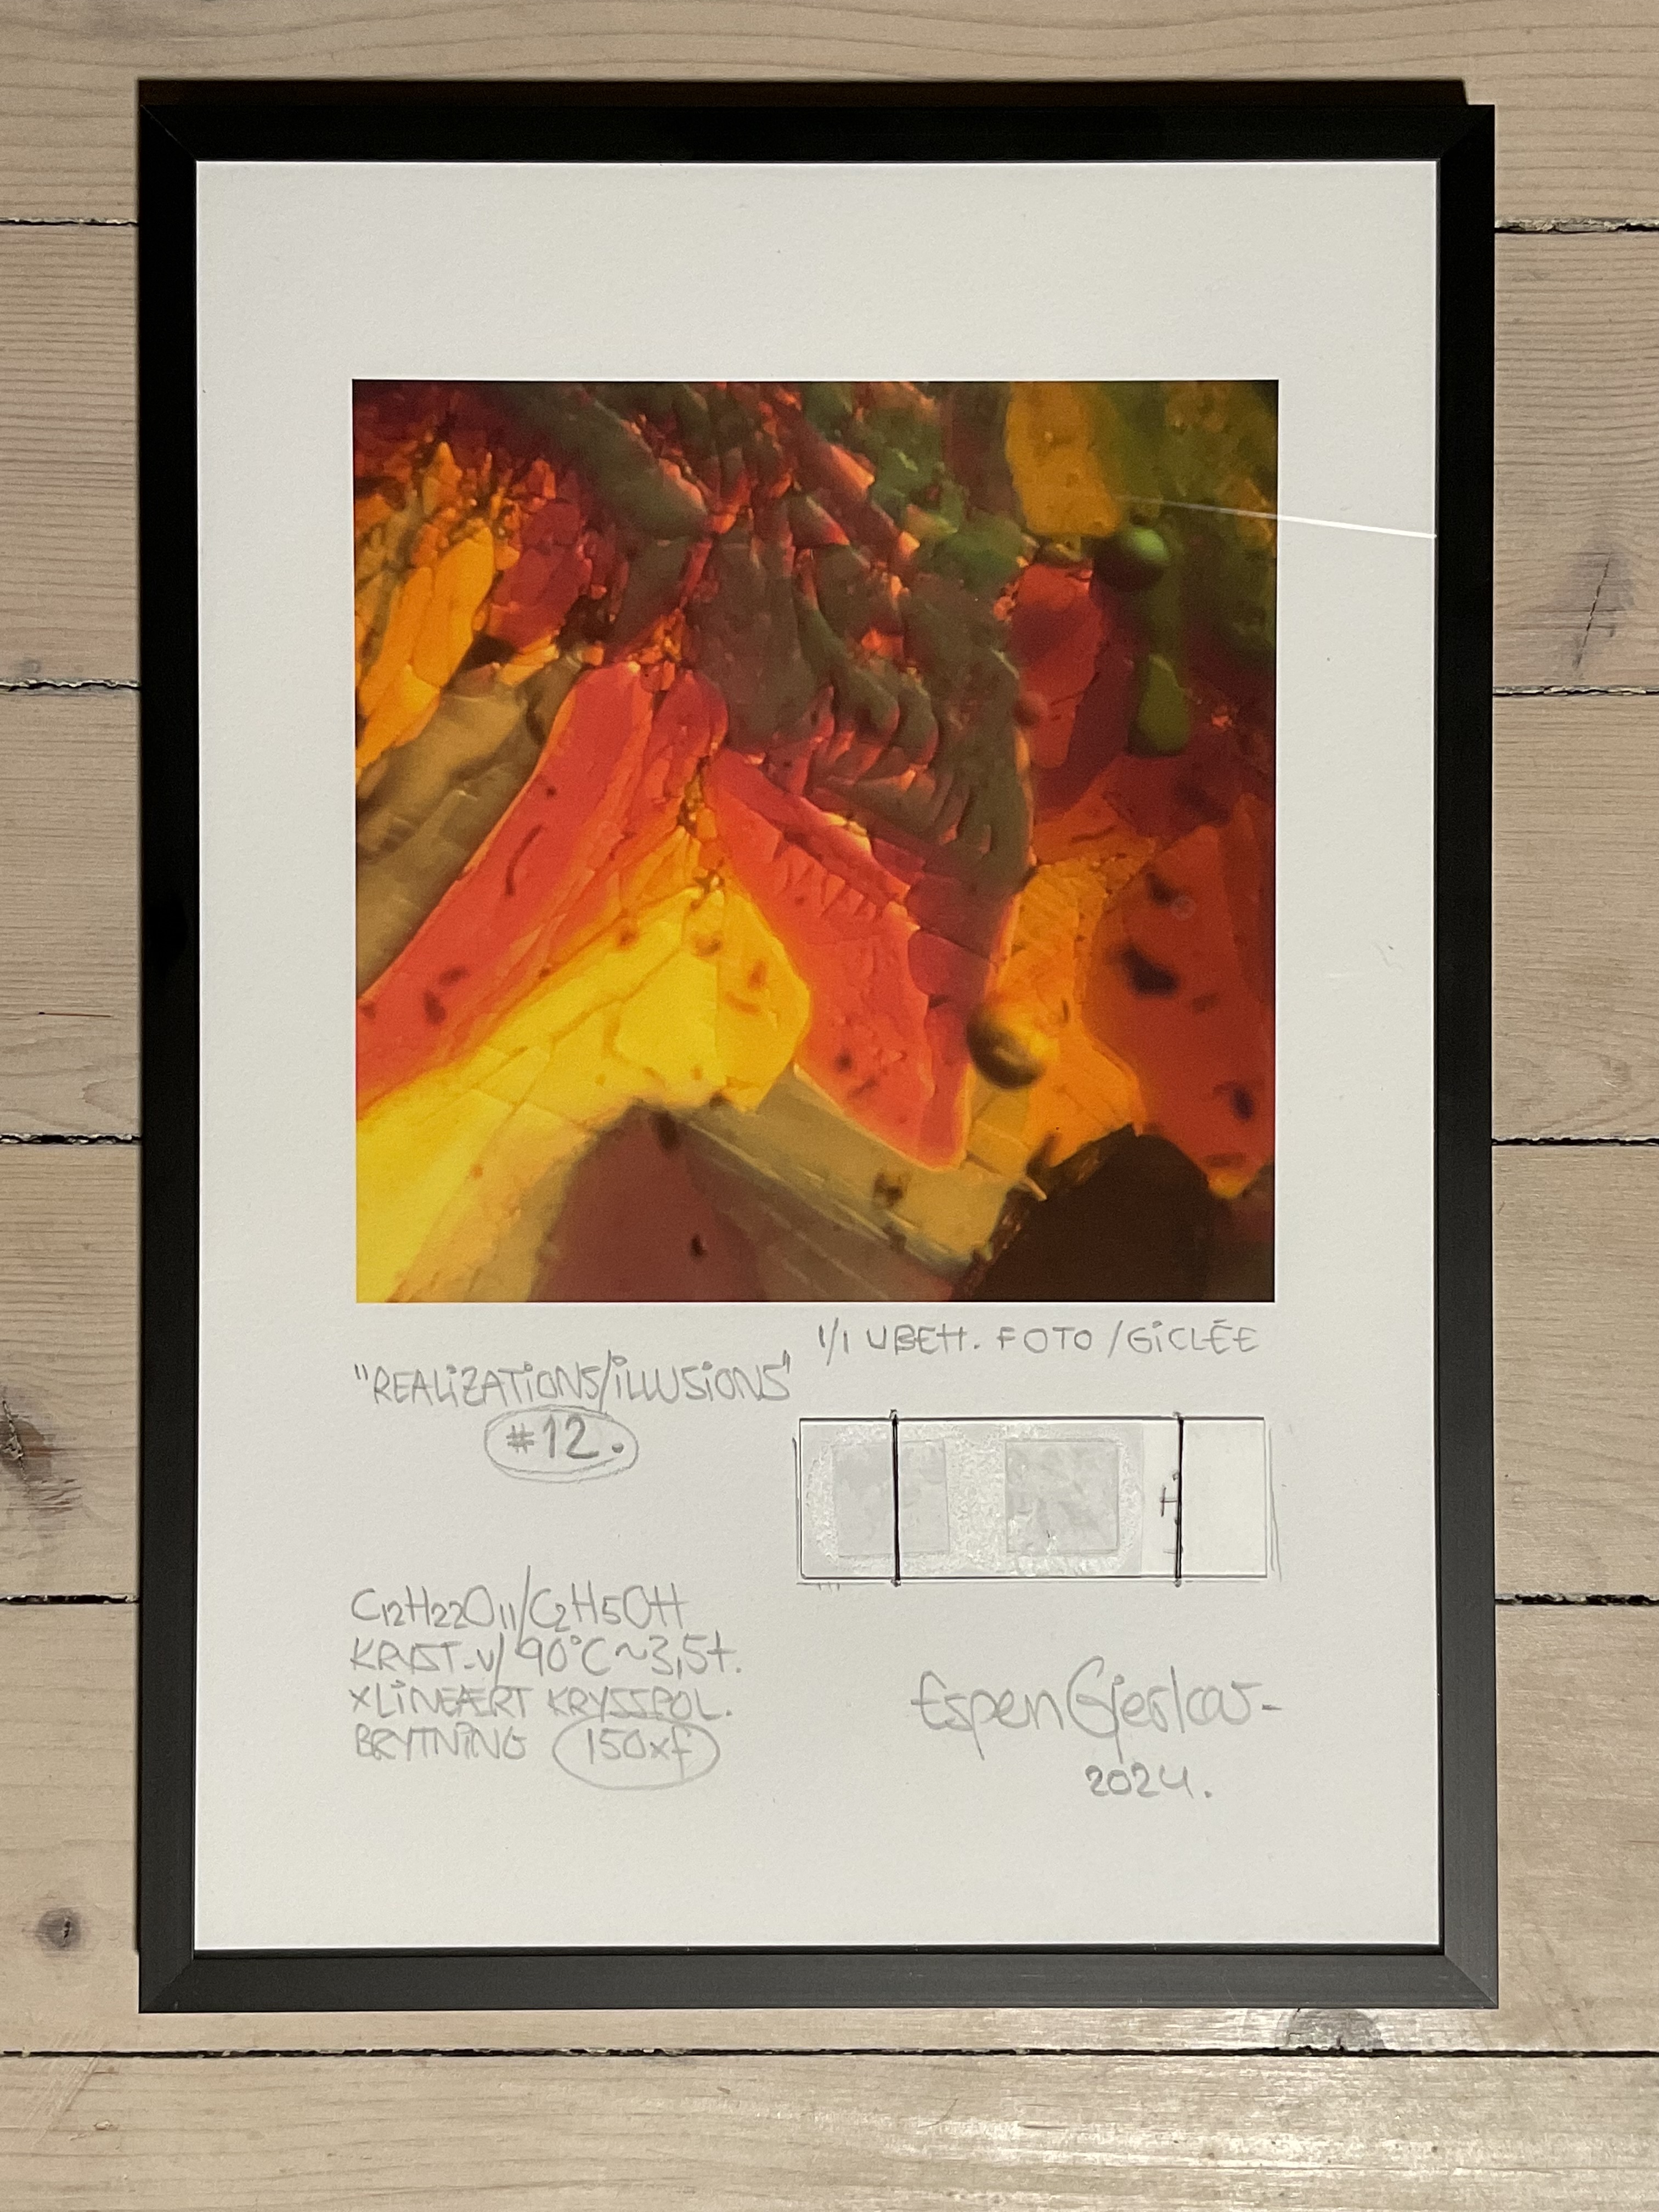 1/1 UBEH. FOTO / GICLÉE
"REALIZATIONS/ILLUSIONS"
#12.
C12H22O11/C2H5OH
KRYST. v/ 90°C ~3,5t.
XLINEÆRT KRYSSPOL.
BRYTNING 150xf
Espen
2024.